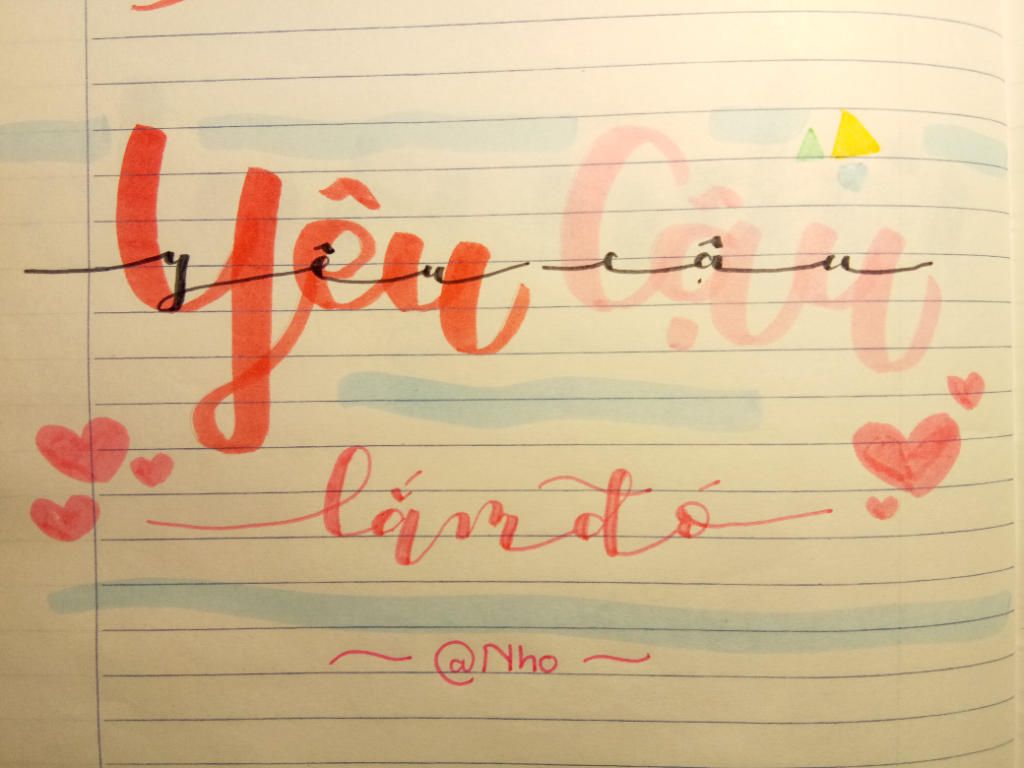 Yêu Cậu
yêu cậu
lắm đó
~ @Nho ~